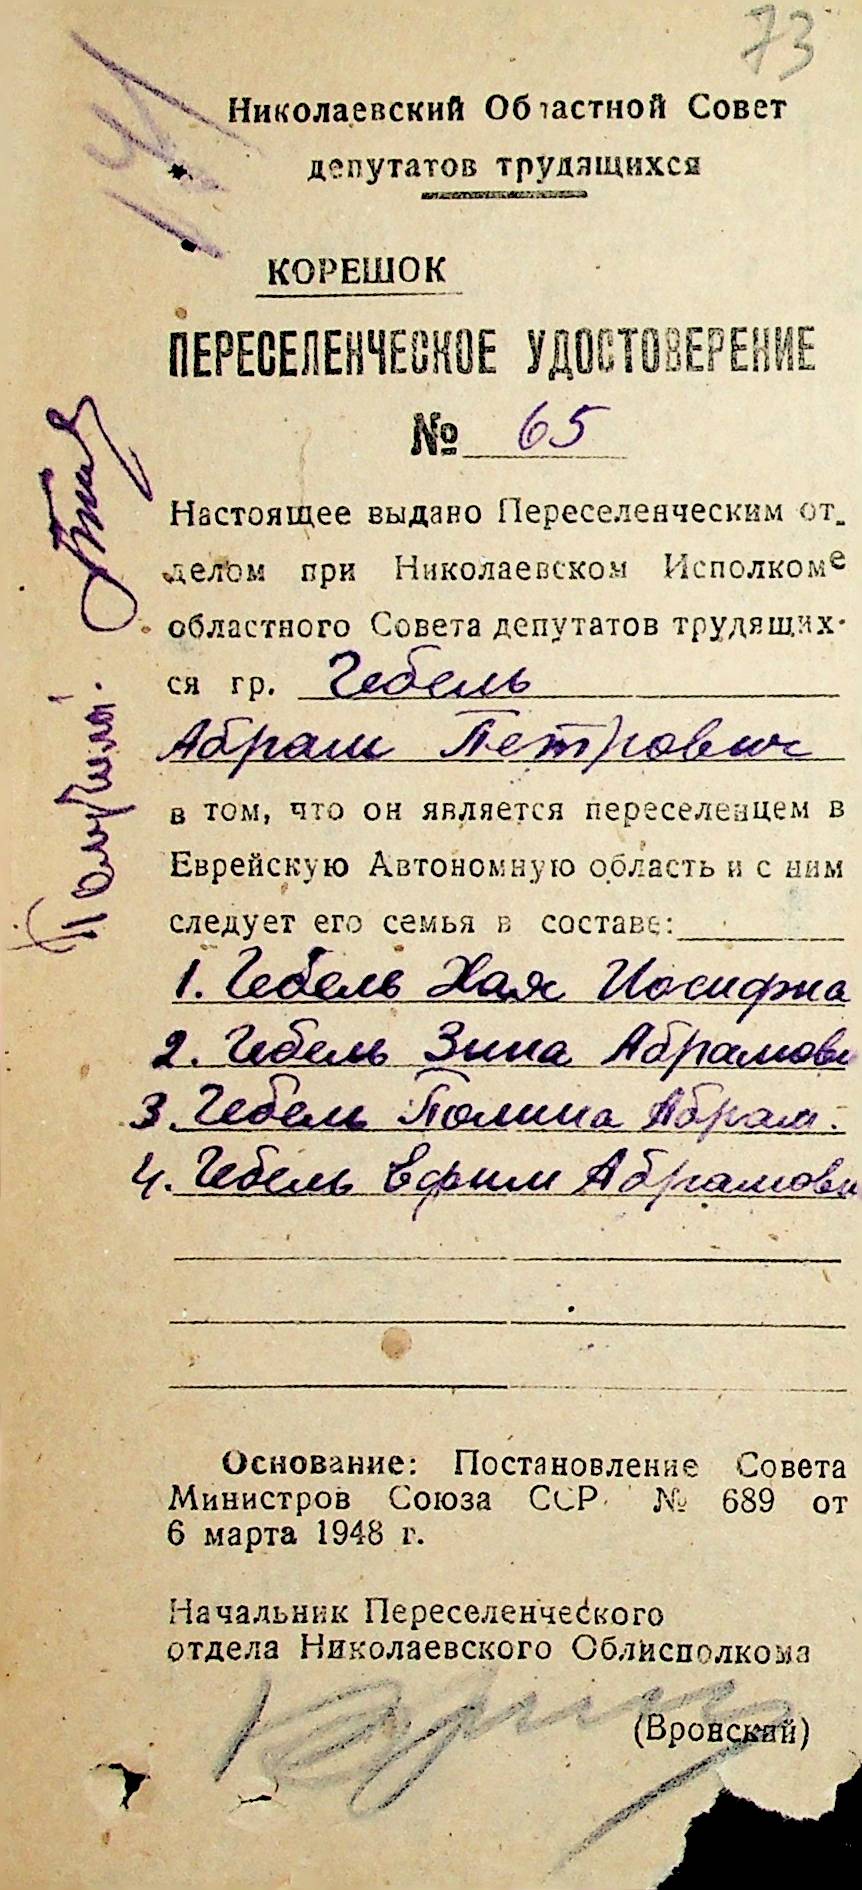 73
Николаевский Областной Совет
депутатов трудящихся
КОРЕШОК
ПЕРЕСЕЛЕНЧЕСКОЕ УДОСТОВЕРЕНИЕ
№ 65
Настоящее выдано Переселенческим от-
делом при Николаевском Исполкоме
областного Совета депутатов трудящих-
ся гр. Гебель
Абрам Петрович
в том, что он является переселенцем в
Еврейскую Автономную область и с ним
следует его семья в составе:
1. Гебель Хая Иосифна
2. Гебель Зина Абрамовн
3. Гебель Полина Абрам.
4. Гебель Ефим Абрамови
Основание: Постановление Совета
Министров Союза ССР № 689 от
6 марта 1948 г.
Начальник Переселенческого
отдела Николаевского Облисполкома
(Вронский)
Получил